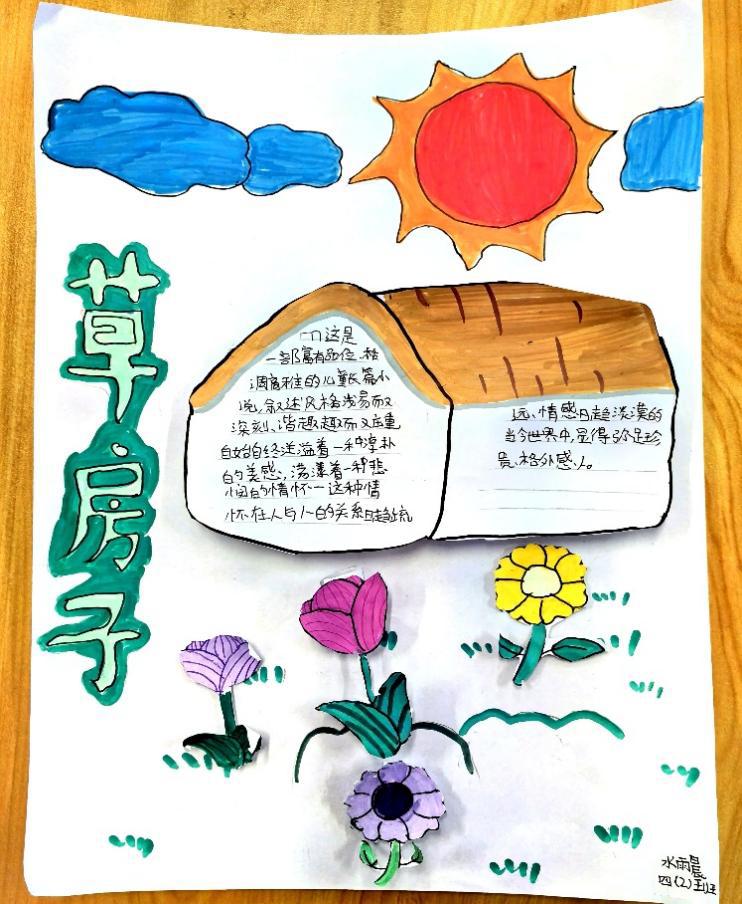 草房子
这是
一部富有品位、格
调高雅的儿童长篇小
说，叙述风格浅易而又
深刻、谐趣而又庄重
自始自终洋溢着一种淳朴
的美感，荡漾着一种悲
悯的情怀一这种情
怀在人与人的关系日趋疏
远、情感日趋淡漠的
当今世界中，显得弥足珍
贵、格外感人。
水雨晨
四(2)班